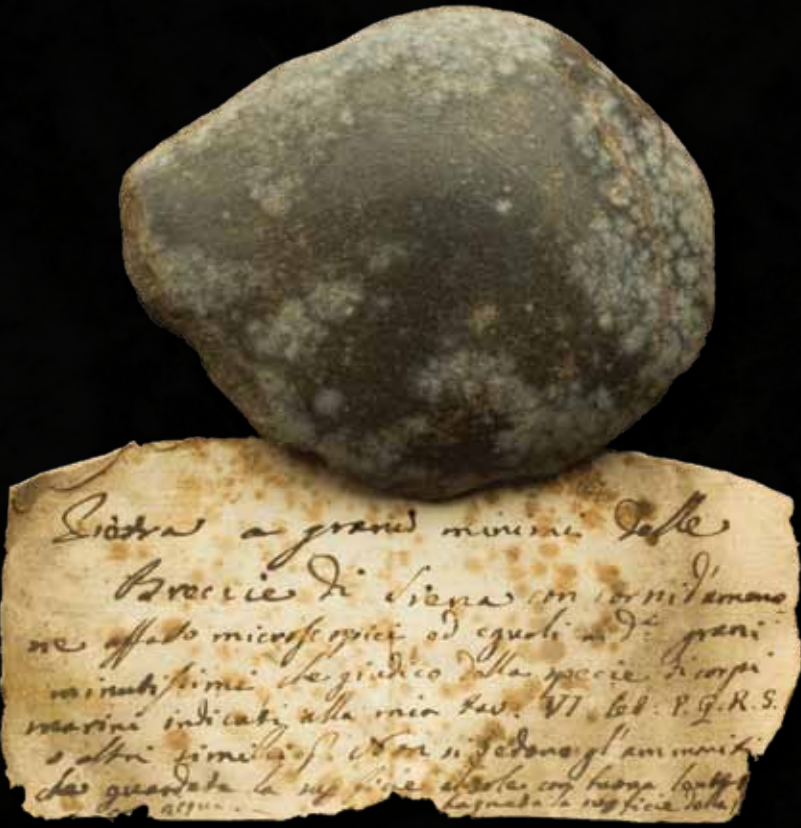 Pietra a grani minimi delle
Breccie di Siena con corni d'ammo
ne affatto microscopici ed eguali a d.i grani
minutissimi che giudico della specie di corpi
marini indicati alla mia tav. VI let. P. Q. R. S.
o altri simili Non si vedono gl'ammoniti
che guardata la superficie al sole con buona
acqua. bagnata la superficie della